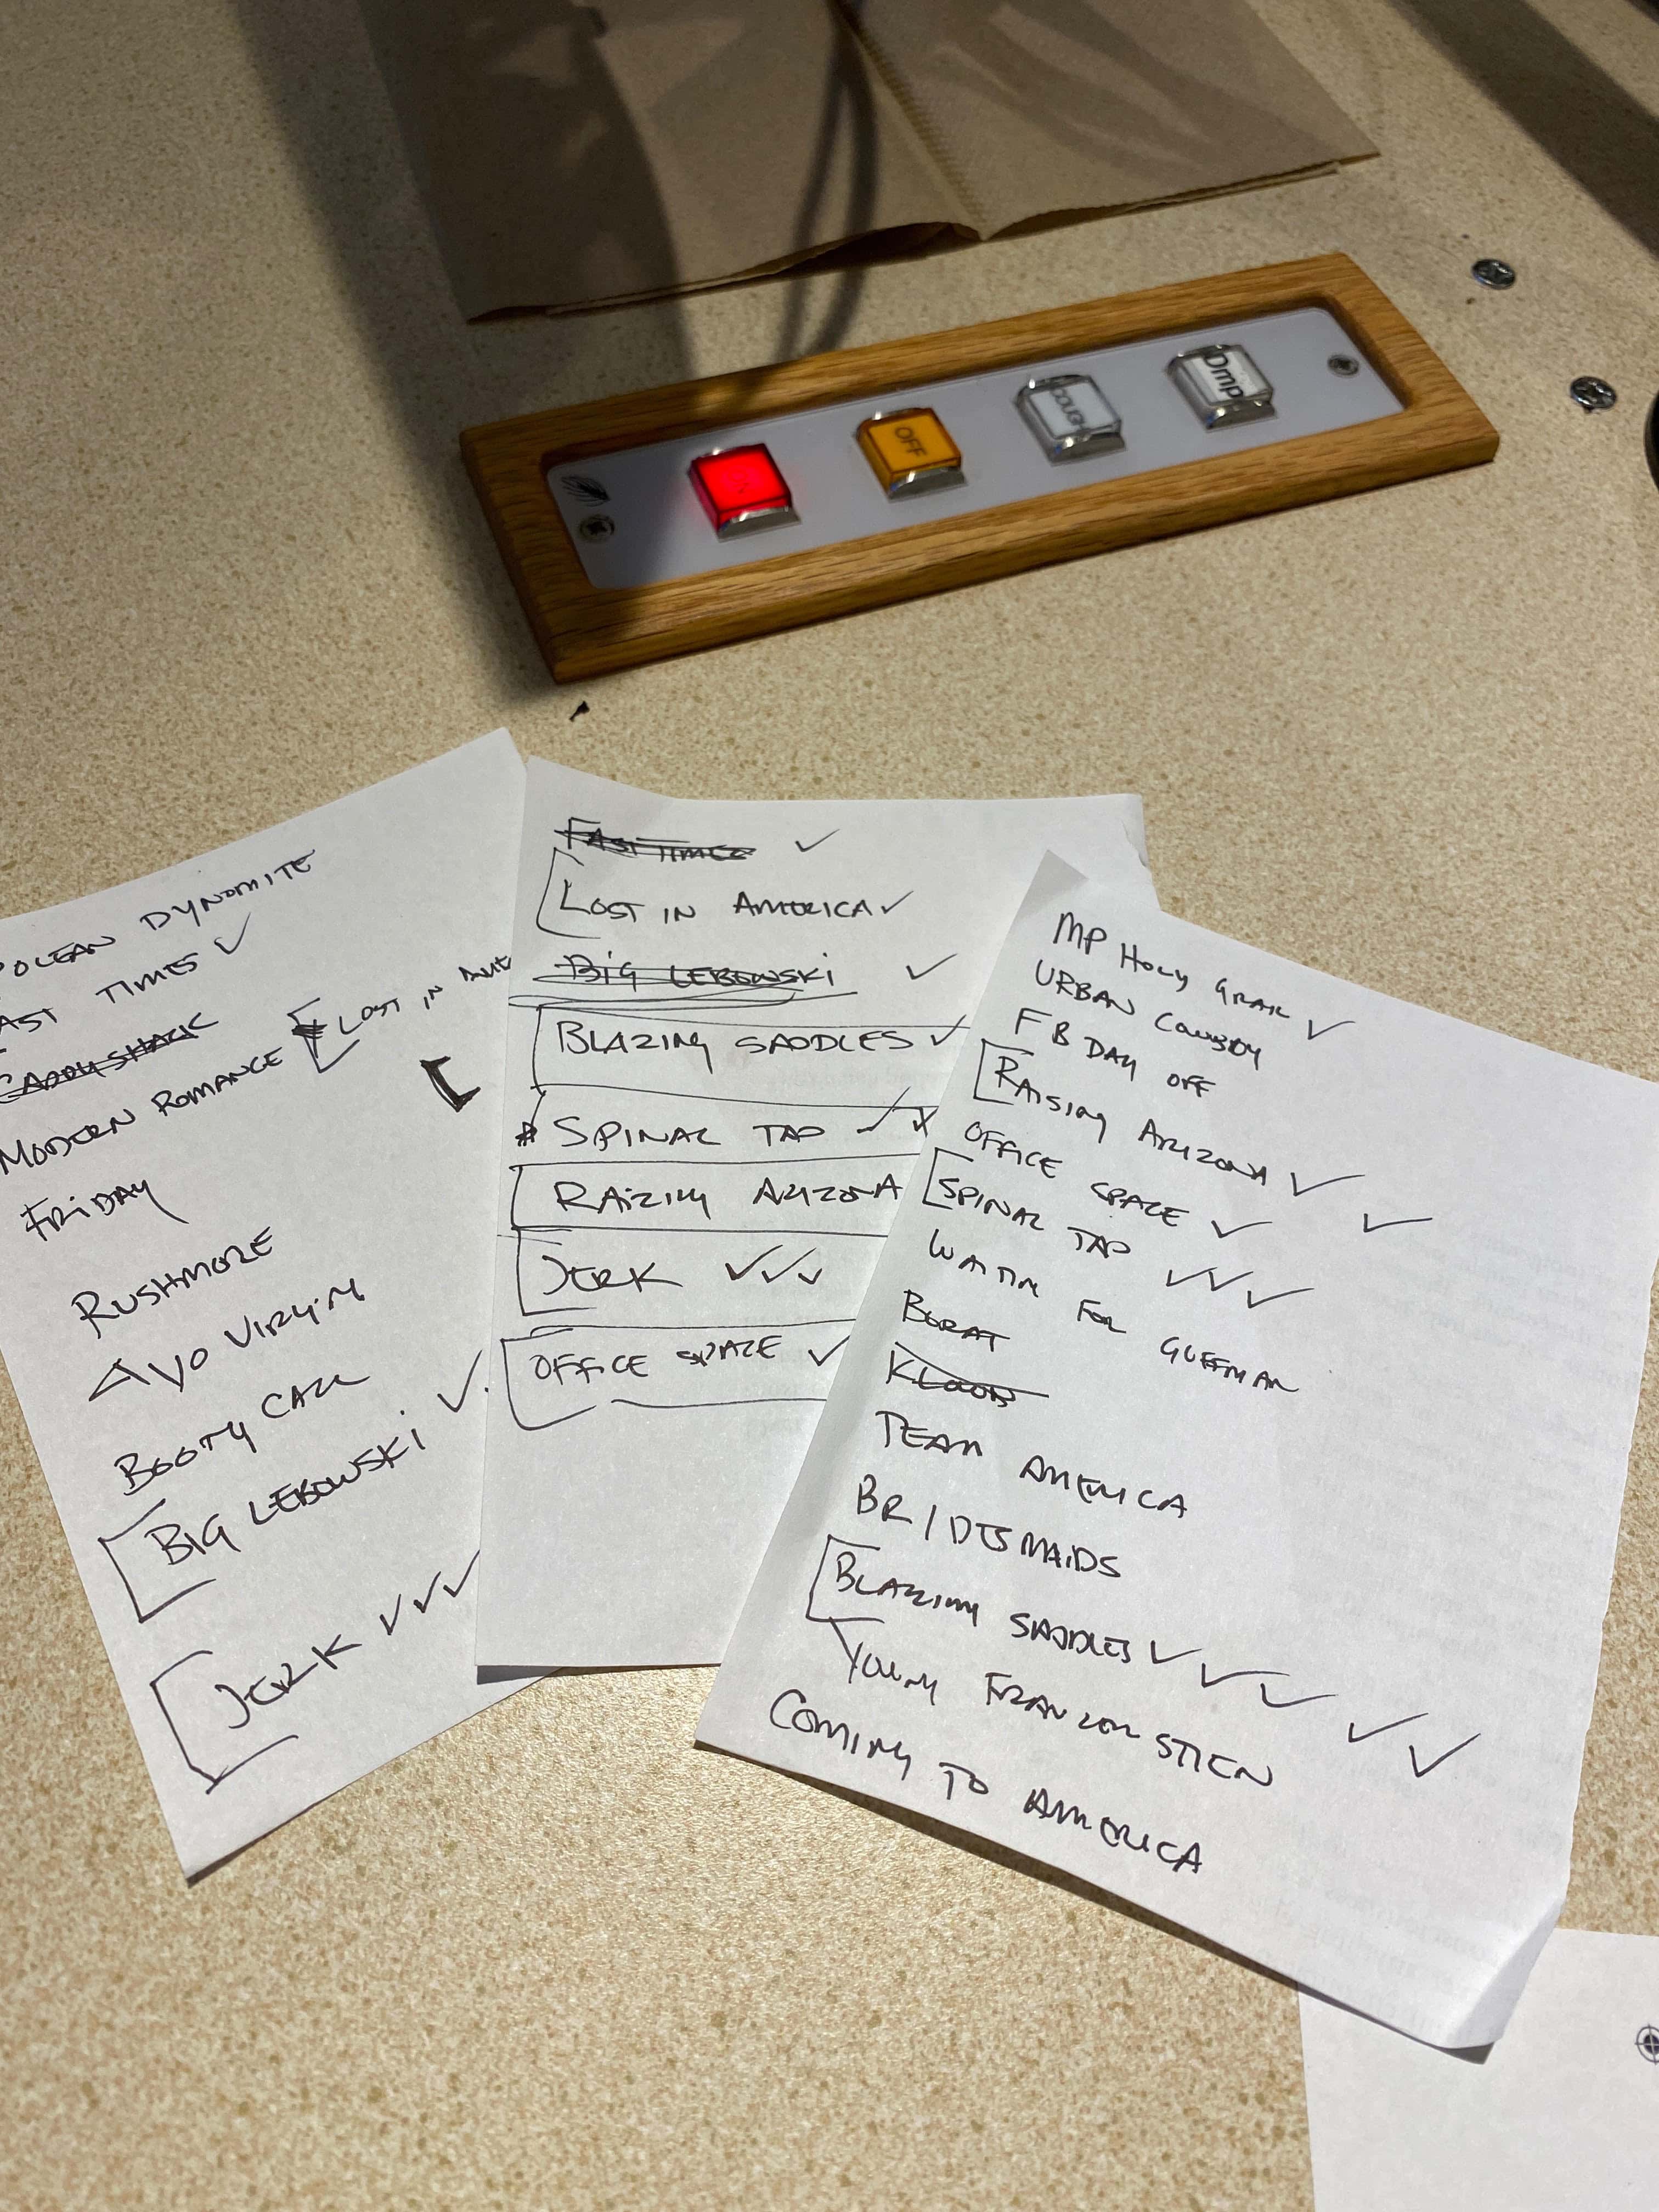 OFF
COUGH
Dmp
POLEAN DYNOMITE
AST TIMES ✓
CADDYSHACK
MODERN ROMANCE [LOST IN AME
FRIDAY
RUSHMORE
4yo VIRGIN
BOOTY CALL
[BIG LEBOWSKI ✓
[JERK ✓✓✓
FAST TIMES ✓
[LOST IN AMERICA ✓
BIG LEBOWSKI ✓
[BLAZING SADDLES ✓
# SPINAL TAP ✓ ✓
[RAIZING ARIZONA
[JERK ✓✓✓
[OFFICE SPACE ✓
MP HOLY GRAIL ✓
URBAN COWBOY
FB DAY OFF
[RAISING ARIZONA ✓ ✓
OFFICE SPACE ✓
[SPINAL TAP ✓✓✓
WAITIN FOR GUFFMAN
BORAT
TEAM AMERICA
BRIDESMAIDS
[BLAZING SADDLES ✓✓✓✓✓
YOUNG FRANKENSTIEN
COMING TO AMERICA